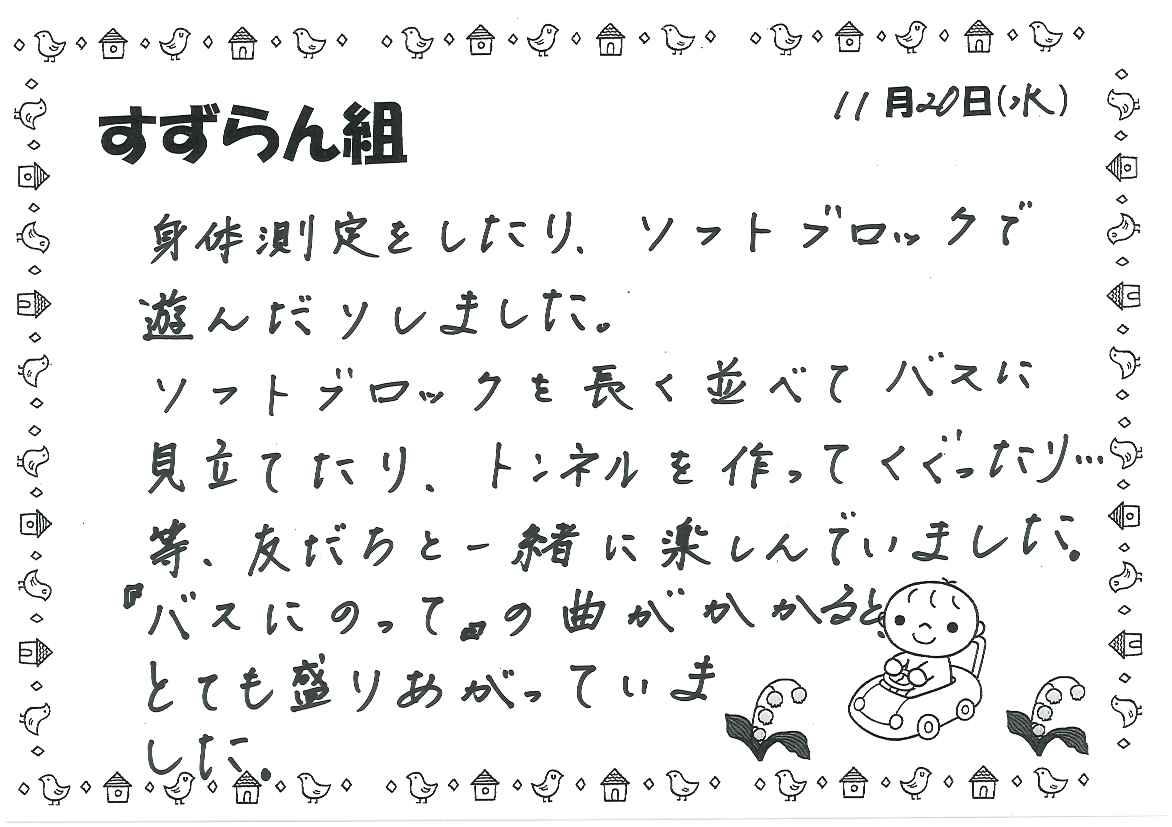 11月20日(水)
すずらん組
身体測定をしたり、ソフトブロックで
遊んだりしました。
ソフトブロックを長く並べてバスに
見立てたり、トンネルを作ってくぐったり…
等、友だちと一緒に楽しんでいました。
『バスにのって』の曲がかかると、
とても盛りあがっていま
した。